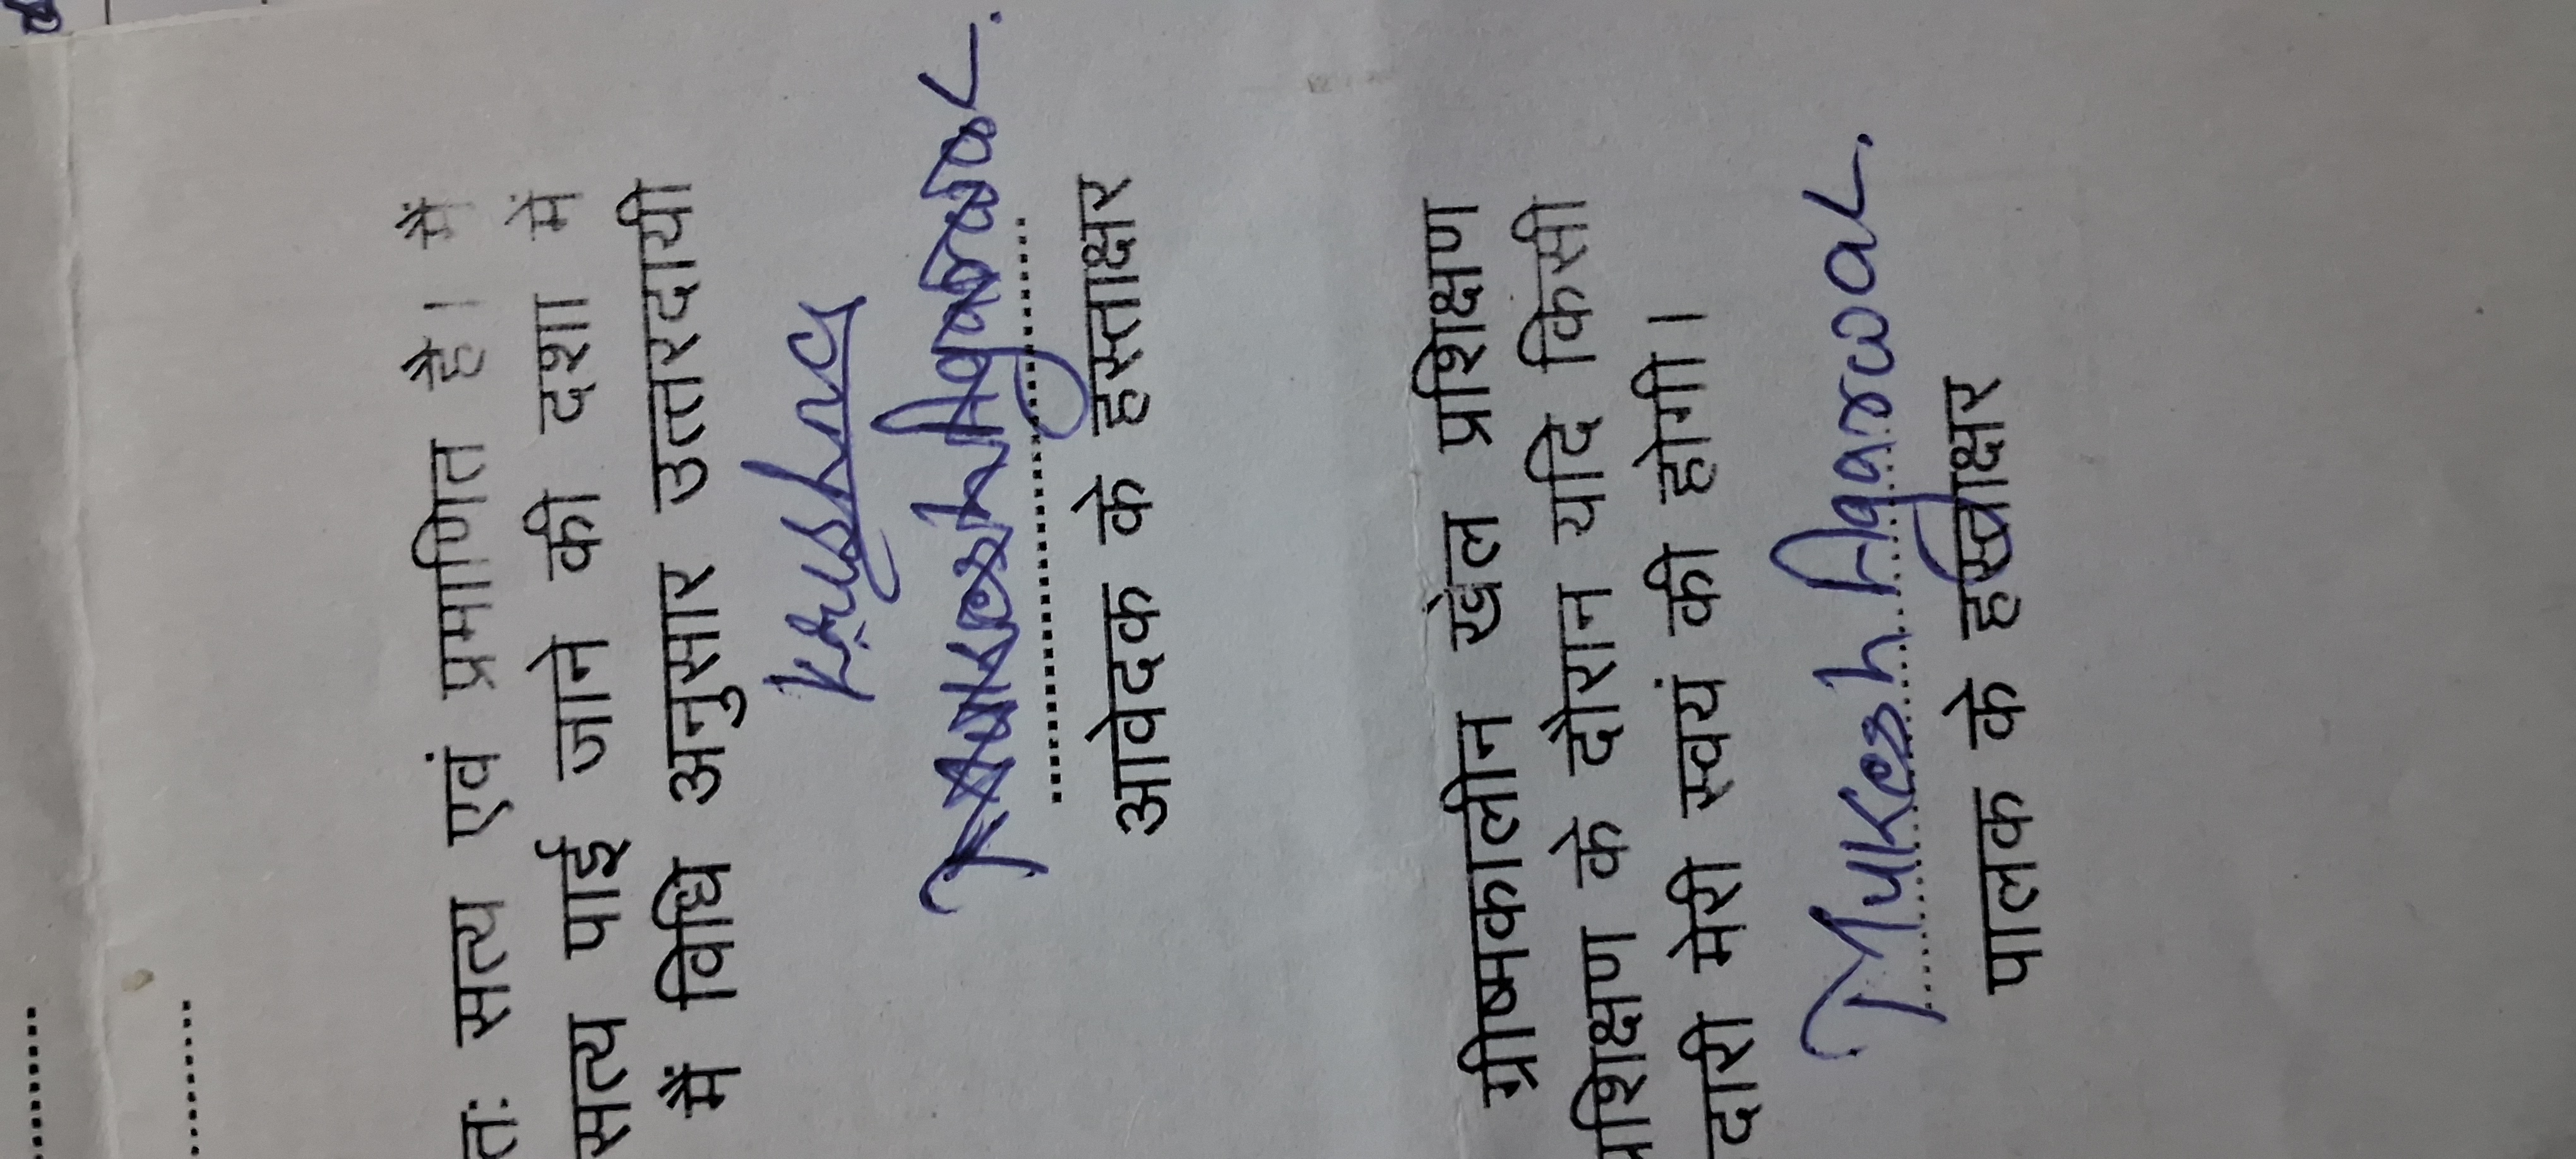 तः सत्य एवं प्रमाणित है। मैं
सत्य पाई जाने की दशा में
में विधि अनुसार उत्तरदायी
Mukesh Agarwal.
आवेदक के हस्ताक्षर
ग्रीष्मकालीन खेल प्रशिक्षण
प्रशिक्षण के दौरान यदि किसी
दारी मेरी स्वयं की होगी।
Mukesh Agarwal.
पालक के हस्ताक्षर